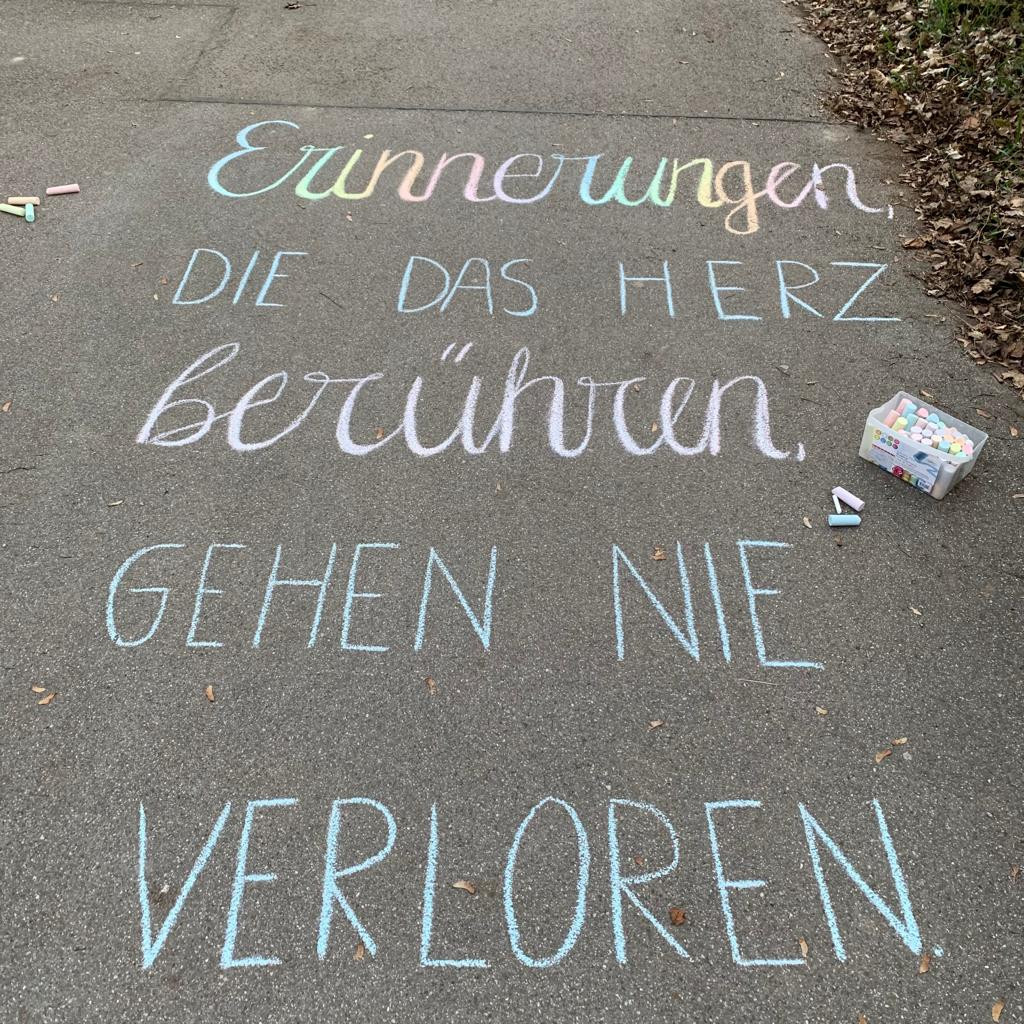 Erinnerungen,
DIE DAS HERZ
berühren,
GEHEN NIE
VERLOREN.